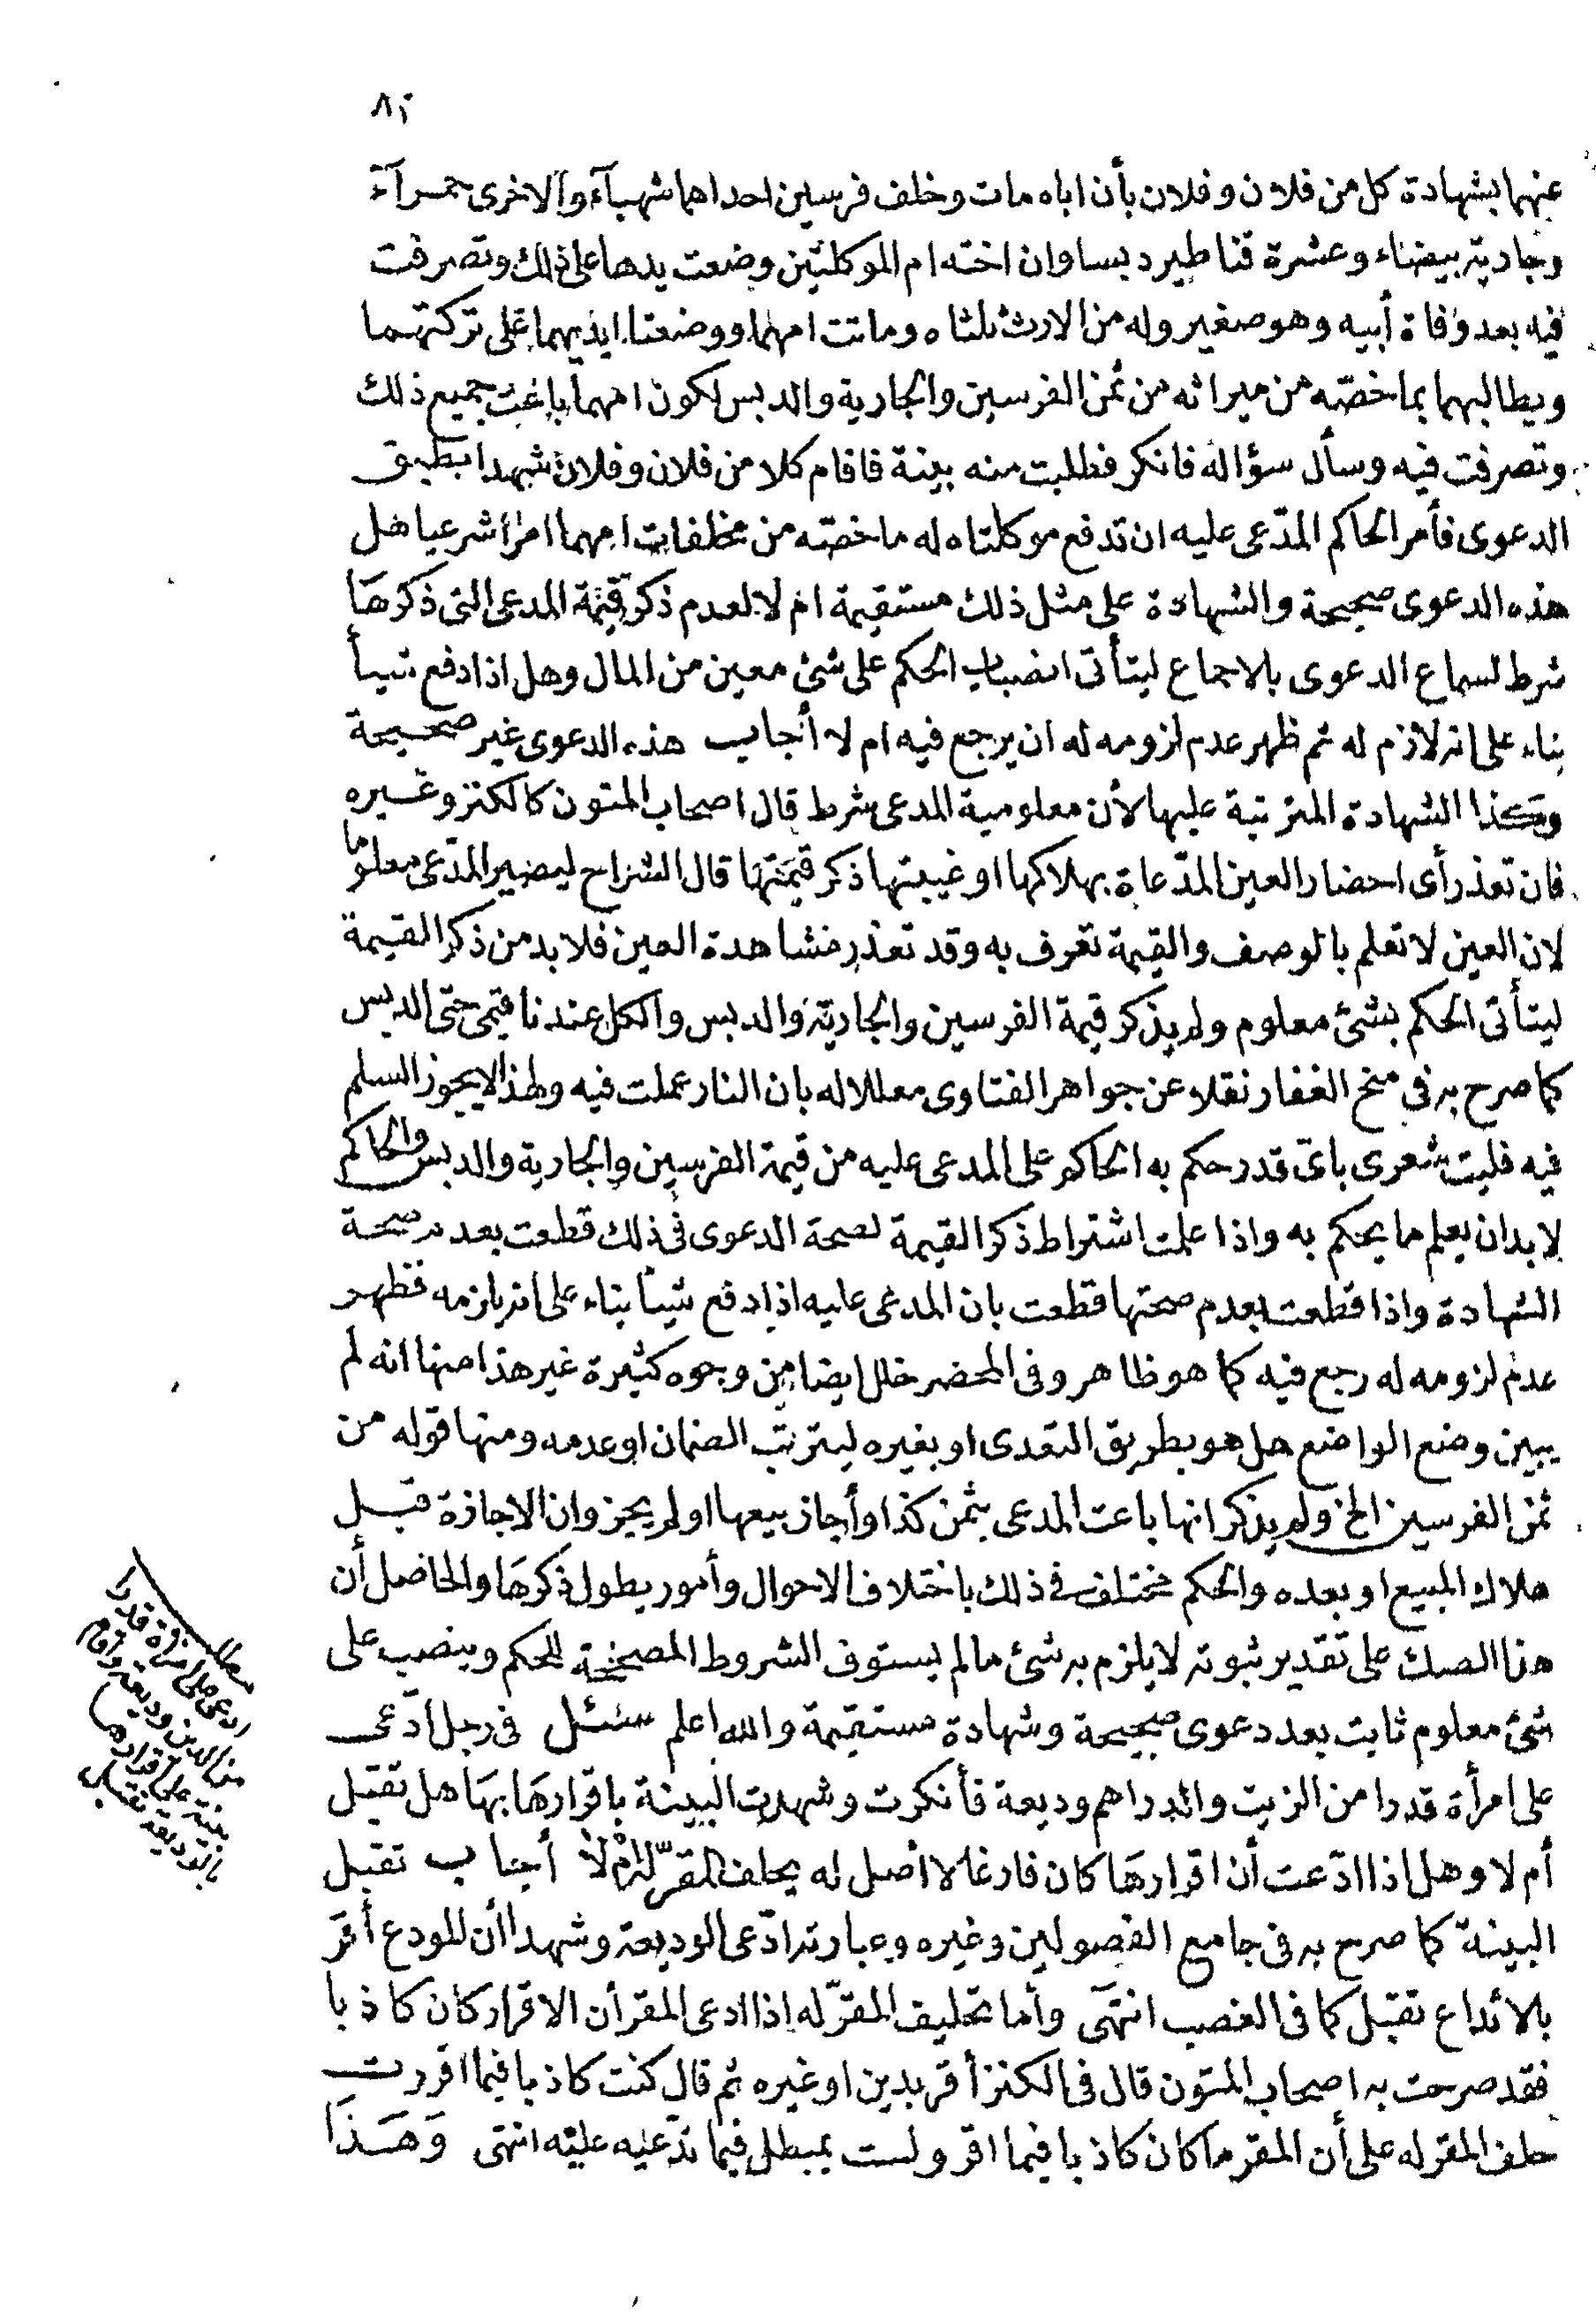 ٨٢
عنهما بشهادة كل من فلان وفلان بأن اباه مات وخلف فرسين احداهما شهبآء والاخرى حمرآء
وجارية بيضاء وعشرة قناطير دبسا وان اخته ام الموكلتين وضعت يدها على ذلك وتصرفت
فيه بعد وفاة أبيه وهو صغير وله من الارث ثلثاه وماتت امهما ووضعتا ايديهما على تركتهما
ويطالبهما بما خصه من ميراثه من ثمن الفرسين والجارية والدبس لكون امهما باعت جميع ذلك
وتصرفت فيه وسأل سؤاله فانكر فطلبت منه بينة فاقام كلا من فلان وفلان شهدا بطبق
الدعوى فأمر الحاكم المدّعى عليه ان تدفع موكلتاه له ما خصّه من مخلفات امهما امرا شرعيا هل
هذه الدعوى صحيحة والشهادة على مثل ذلك مستقيمة ام لا لعدم ذكر قيمة المدعى التى ذكرها
شرط لسماع الدعوى بالاجماع ليتأتى انضباب الحكم على شئ معين من المال وهل اذا دفع شيأ
بناء على انه لازم له ثم ظهر عدم لزومه له ان يرجع فيه ام لا أجاب هذه الدعوى غير صحيحة
وكذا الشهادة المترتبة عليها لأن معلومية المدعى شرط قال اصحاب المتون كالكنز وغيره
فان تعذر أى احضار العين المدّعاة بهلاكها او غيبتها ذكر قيمتها قال الشراح ليصير المدّعى معلوما
لان العين لا تعلم بالوصف والقيمة تعرف به وقد تعذر مشاهدة العين فلا بد من ذكر القيمة
ليتأتى الحكم بشئ معلوم ولم يذكر قيمة الفرسين والجارية والدبس والكل عندنا قيمى حتى الدبس
كما صرح به فى منح الغفار نقلا عن جواهر الفتاوى معللا له بان النار عملت فيه ولهذا لا يجوز السلم
فيه فليت شعرى باى قدر حكم به الحاكم على المدعى عليه من قيمة الفرسين والجارية والدبس والحاكم
لا بد ان يعلم ما يحكم به واذا علمت اشتراط ذكر القيمة لصحة الدعوى فى ذلك قطعت بعدم صحة
الشهادة واذا قطعت بعدم صحتها قطعت بان المدعى عليه اذا دفع شيأ بناء على انه يلزمه فظهر
عدم لزومه له رجع فيه كما هو ظاهر وفى المحضر خلل ايضا من وجوه كثيرة غير هذا منها انه لم
يبين وضع الواضع هل هو بطريق التعدى او بغيره ليترتب الضمان او عدمه ومنها قوله من
ثمن الفرسين الخ ولم يذكر انها باعت المدعى بثمن كذا وأجاز بيعها او لم يجز وان الاجازة قبل
هلاك المبيع او بعده والحكم مختلف فى ذلك باختلاف الاحوال وأمور يطول ذكرها والحاصل أن
هذا الصك على تقدير ثبوته لا يلزم به شئ ما لم يستوف الشروط المصححة للحكم وينصب على
شئ معلوم ثابت بعد دعوى صحيحة وشهادة مستقيمة والله اعلم سئل فى رجل ادّعى
على امرأة قدرا من الزيت والدراهم وديعة فأنكرت وشهدت البينة باقرارها بها هل تقبل
أم لا وهل اذا ادّعت أن اقرارها كان فارغا لا أصل له يحلف المقرّ له ام لا أجاب تقبل
البينة كما صرح به فى جامع الفصولين وغيره وعبارته ادّعى الوديعة وشهدا أن المودع أقر
بالائداع تقبل كما فى الغصب انتهى وأما تحليف المقرّ له اذا ادعى المقر أن الاقرار كان كاذبا
فقد صرحت به اصحاب المتون قال فى الكنز أقر بدين او غيره ثم قال كنت كاذبا فيما اقررت
حلف المقر له على أن المقر ما كان كاذبا فيما اقر ولست بمبطل فيما تدّعيه عليه انتهى وهذا
مطلب
ادعى على امرأة قدرا
من الزيت وديعة واقام
بينة على اقرارها
بالوديعة تقبل